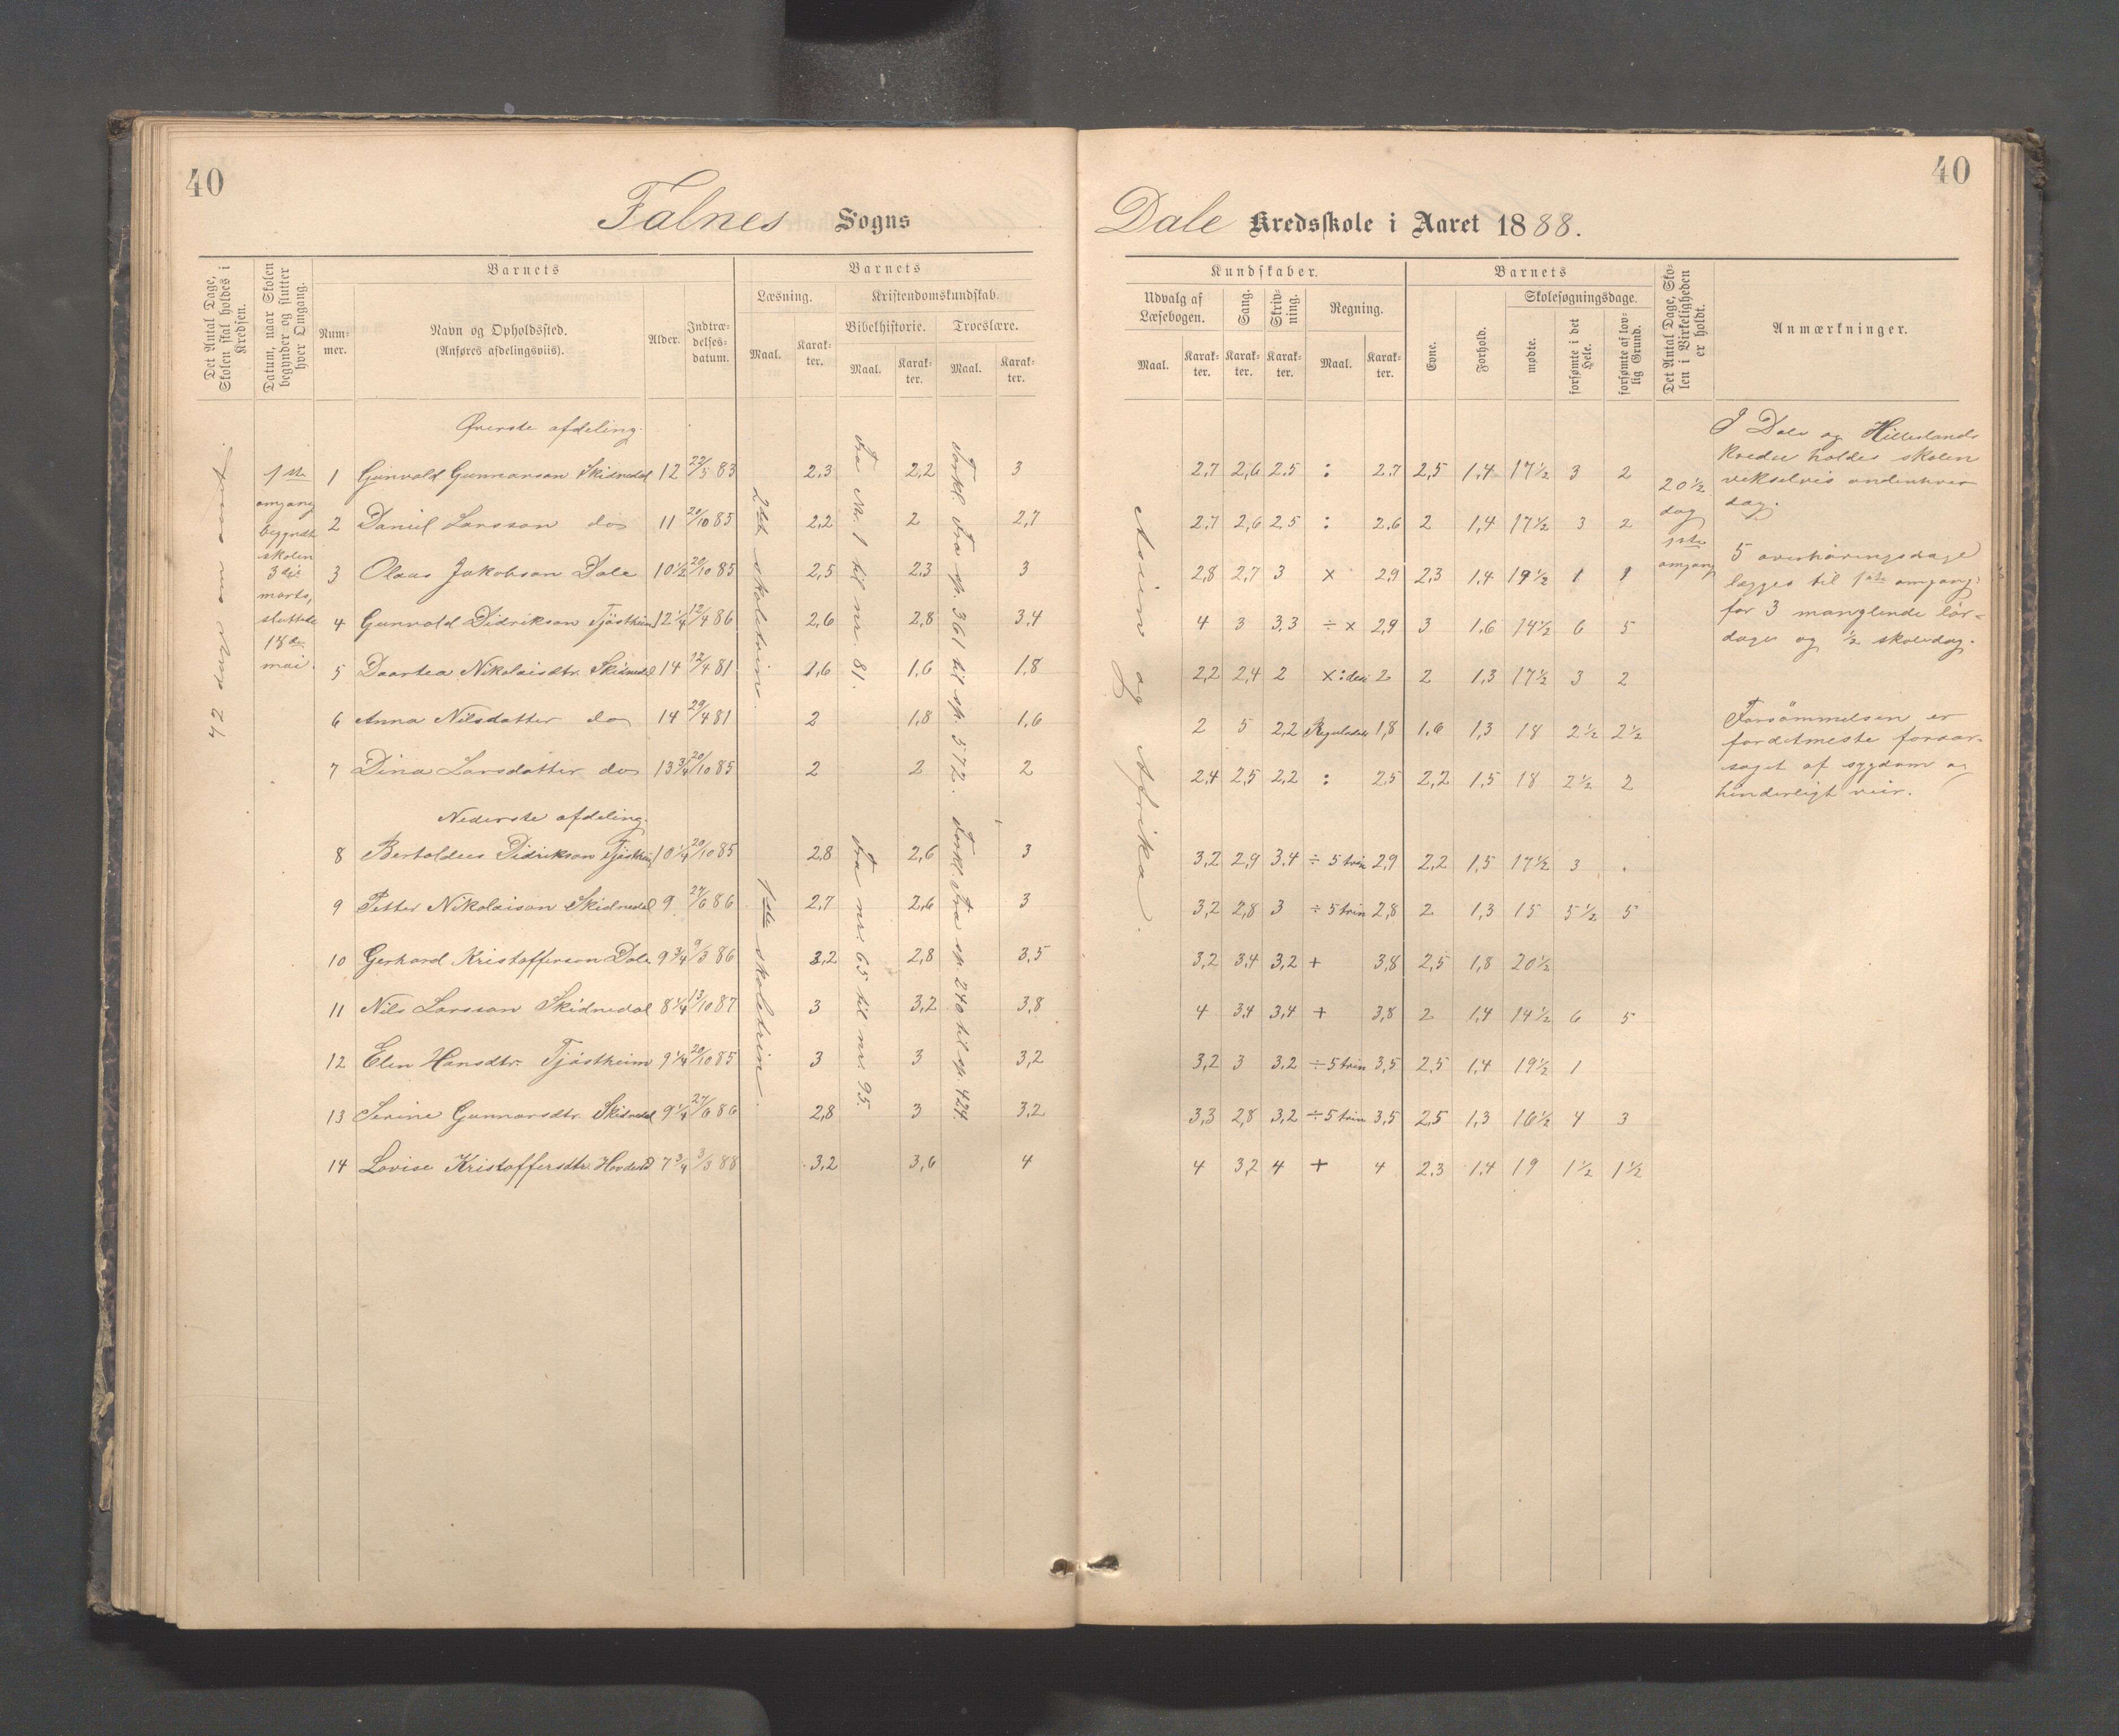 40
Falnes Sogns
Det Antal Dage, Skolen skal holdes i Kredsen.
Datum, naar Skolen begynder og slutter hver Omgang.
Barnets
Nummer.
Navn og Opholdssted.
(Anføres afdelingsviis).
Alder.
Indtrædelsesdatum.
Barnets
Læsning.
Maal.
Karakter.
Kristendomskundskab.
Bibelhistorie.
Maal.
Karakter.
Troeslære.
Maal.
Karakter.
42 dage om aaret.
1ste
omgang
begyndte
skolen
3die
marts,
sluttede
18de
mai.
Øverste afdeling.
1 Gunvald Gunnarson Skidnedal 12 22/3 83 2,3 2,2 3
2 Daniel Larsson do 11 20/10 85 2,2 2 2,7
3 Olaus Jakobson Dale 10 1/2 20/10 85 2,5 2,3 3
4 Gunvald Didrikson Tjöstheim 12 1/4 12/4 86 2,6 2,8 3,4
5 Daartea Nikolaisdtr. Skidnedal 14 12/4 81 1,6 1,6 1,8
6 Anna Nilsdatter do 14 29/4 81 2 1,8 1,6
7 Dina Larsdatter do 13 3/4 20/10 85 2 2 2
Nederste afdeling.
8 Bertoldus Didrikson Tjöstheim 10 1/4 20/10 85 2,8 2,6 3
9 Petter Nikolaison Skidnedal 9 27/6 86 2,7 2,6 3
10 Gerhard Kristofferson Dale 9 3/4 9/3 86 3,2 2,8 3,5
11 Nils Larsson Skidnedal 8 1/4 13/10 87 3 3,2 3,8
12 Elen Hansdtr. Tjöstheim 9 1/4 20/10 85 3 3 3,2
13 Serine Gunnarsdtr. Skidnedal 9 1/4 27/6 86 2,8 3 3,2
14 Lovise Kristoffersdtr. 7 3/4 3/3 88 3,2 3,6 4
2det skoletrin.
1ste skoletrin.
Fra Nr. 1 til nr. 81.
Fra nr. 65 til nr. 95.
Forkl. Fra sp. 361 til sp. 572.
Forkl. Fra sp. 240 til sp. 424.
40
Dale Kredsskole i Aaret 1888.
Kundskaber.
Udvalg af Læsebogen.
Maal.
Karakter.
Sang.
Karakter.
Skrivning.
Karakter.
Regning.
Maal.
Karakter.
Barnets
Evne.
Forhold.
Skolesøgningsdage.
mødte.
forsømte i det Hele.
forsømte af lovlig Grund.
Det Antal Dage, Skolen i Virkeligheden er holdt.
Anmærkninger.
Asien og Afrika.
2,7 2,6 2,5 : 2,7 2,5 1,4 17 1/2 3 2
2,7 2,6 2,5 : 2,6 2 1,4 17 1/2 3 2
2,8 2,7 3 x 2,9 2,3 1,4 19 1/2 1 1
4 3 3,3 ÷ x 2,9 3 1,6 14 1/2 6 5
2,2 2,4 2 x : 2 2 1,3 17 1/2 3 2
2 5 2,2 1,8 1,6 1,3 18 2 1/2 2 1/2
2,4 2,5 2,2 : 2,5 2,2 1,5 18 2 1/2 2
3,2 2,9 3,4 ÷ 5 trin 2,9 2,2 1,5 17 1/2 3 .
3,2 2,8 3 ÷ 5 trin 2,8 2 1,3 15 5 1/2 5
3,2 3,4 3,2 + 3,8 2,5 1,8 20 1/2
4 3,4 3,4 + 3,8 2 1,4 14 1/2 6 5
3,2 3 3,2 ÷ 5 trin 3,5 2,5 1,4 19 1/2 1
3,3 2,8 3,2 ÷ 5 trin 3,5 2,5 1,3 16 1/2 4 3
4 3,2 4 + 4 2,3 1,4 19 1 1/2 1 1/2
20 1/2
dag
1ste
omgang
I Dale og Hillelands
kredse holdes skolen
vekselvis andenhver
dag.
5 overhøringsdage
lægges til 1ste omgang;
for 3 manglende lör-
dager og 1/2 skoledag.
Forsömmelsen er
fordetmeste foraar-
saget af sygdom og
hinderligt veir.